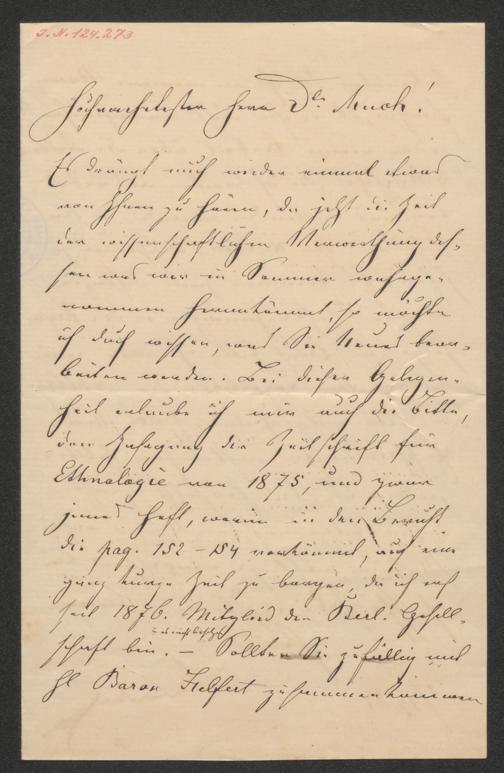 J. N. 124.273
Hochverehrtester Herr Dr. Much!
Es drängt mich wieder einmal etwas
von Ihnen zu hören, da jetzt die Zeit
der wissenschaftlichen Verwerthung des-
sen was wir im Sommer wahrge-
nommen herankömmt, so möchte
ich doch wissen, was Sie Neues bear-
beiten werden. Bei dieser Gelegen-
heit erlaube ich mir auch die Bitte,
den Jahrgang der Zeitschrift für
Ethnologie von 1875, und zwar
jenes Heft, worin in den Bericht
die pag. 152 – 154 vorkömmt, auf eine
ganz kurze Zeit zu borgen, da ich erst
seit 1876. Mitglied der Berl. Gesell-
schaft bin. – Sollten Sie zufällig mit
H Baron Helfert zusammenkommen